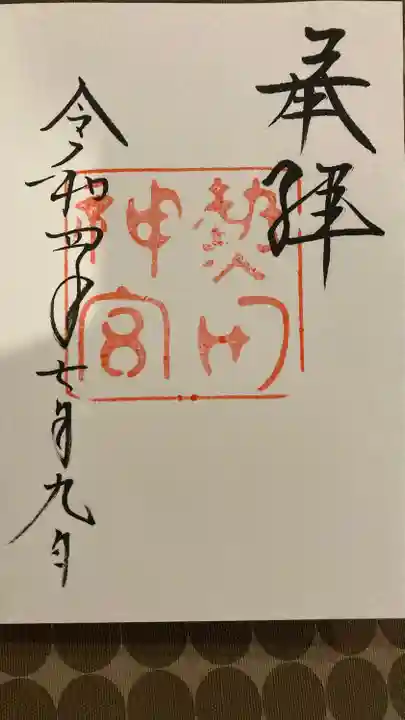 奉拝
熱田
神宮
令和四年七月九日